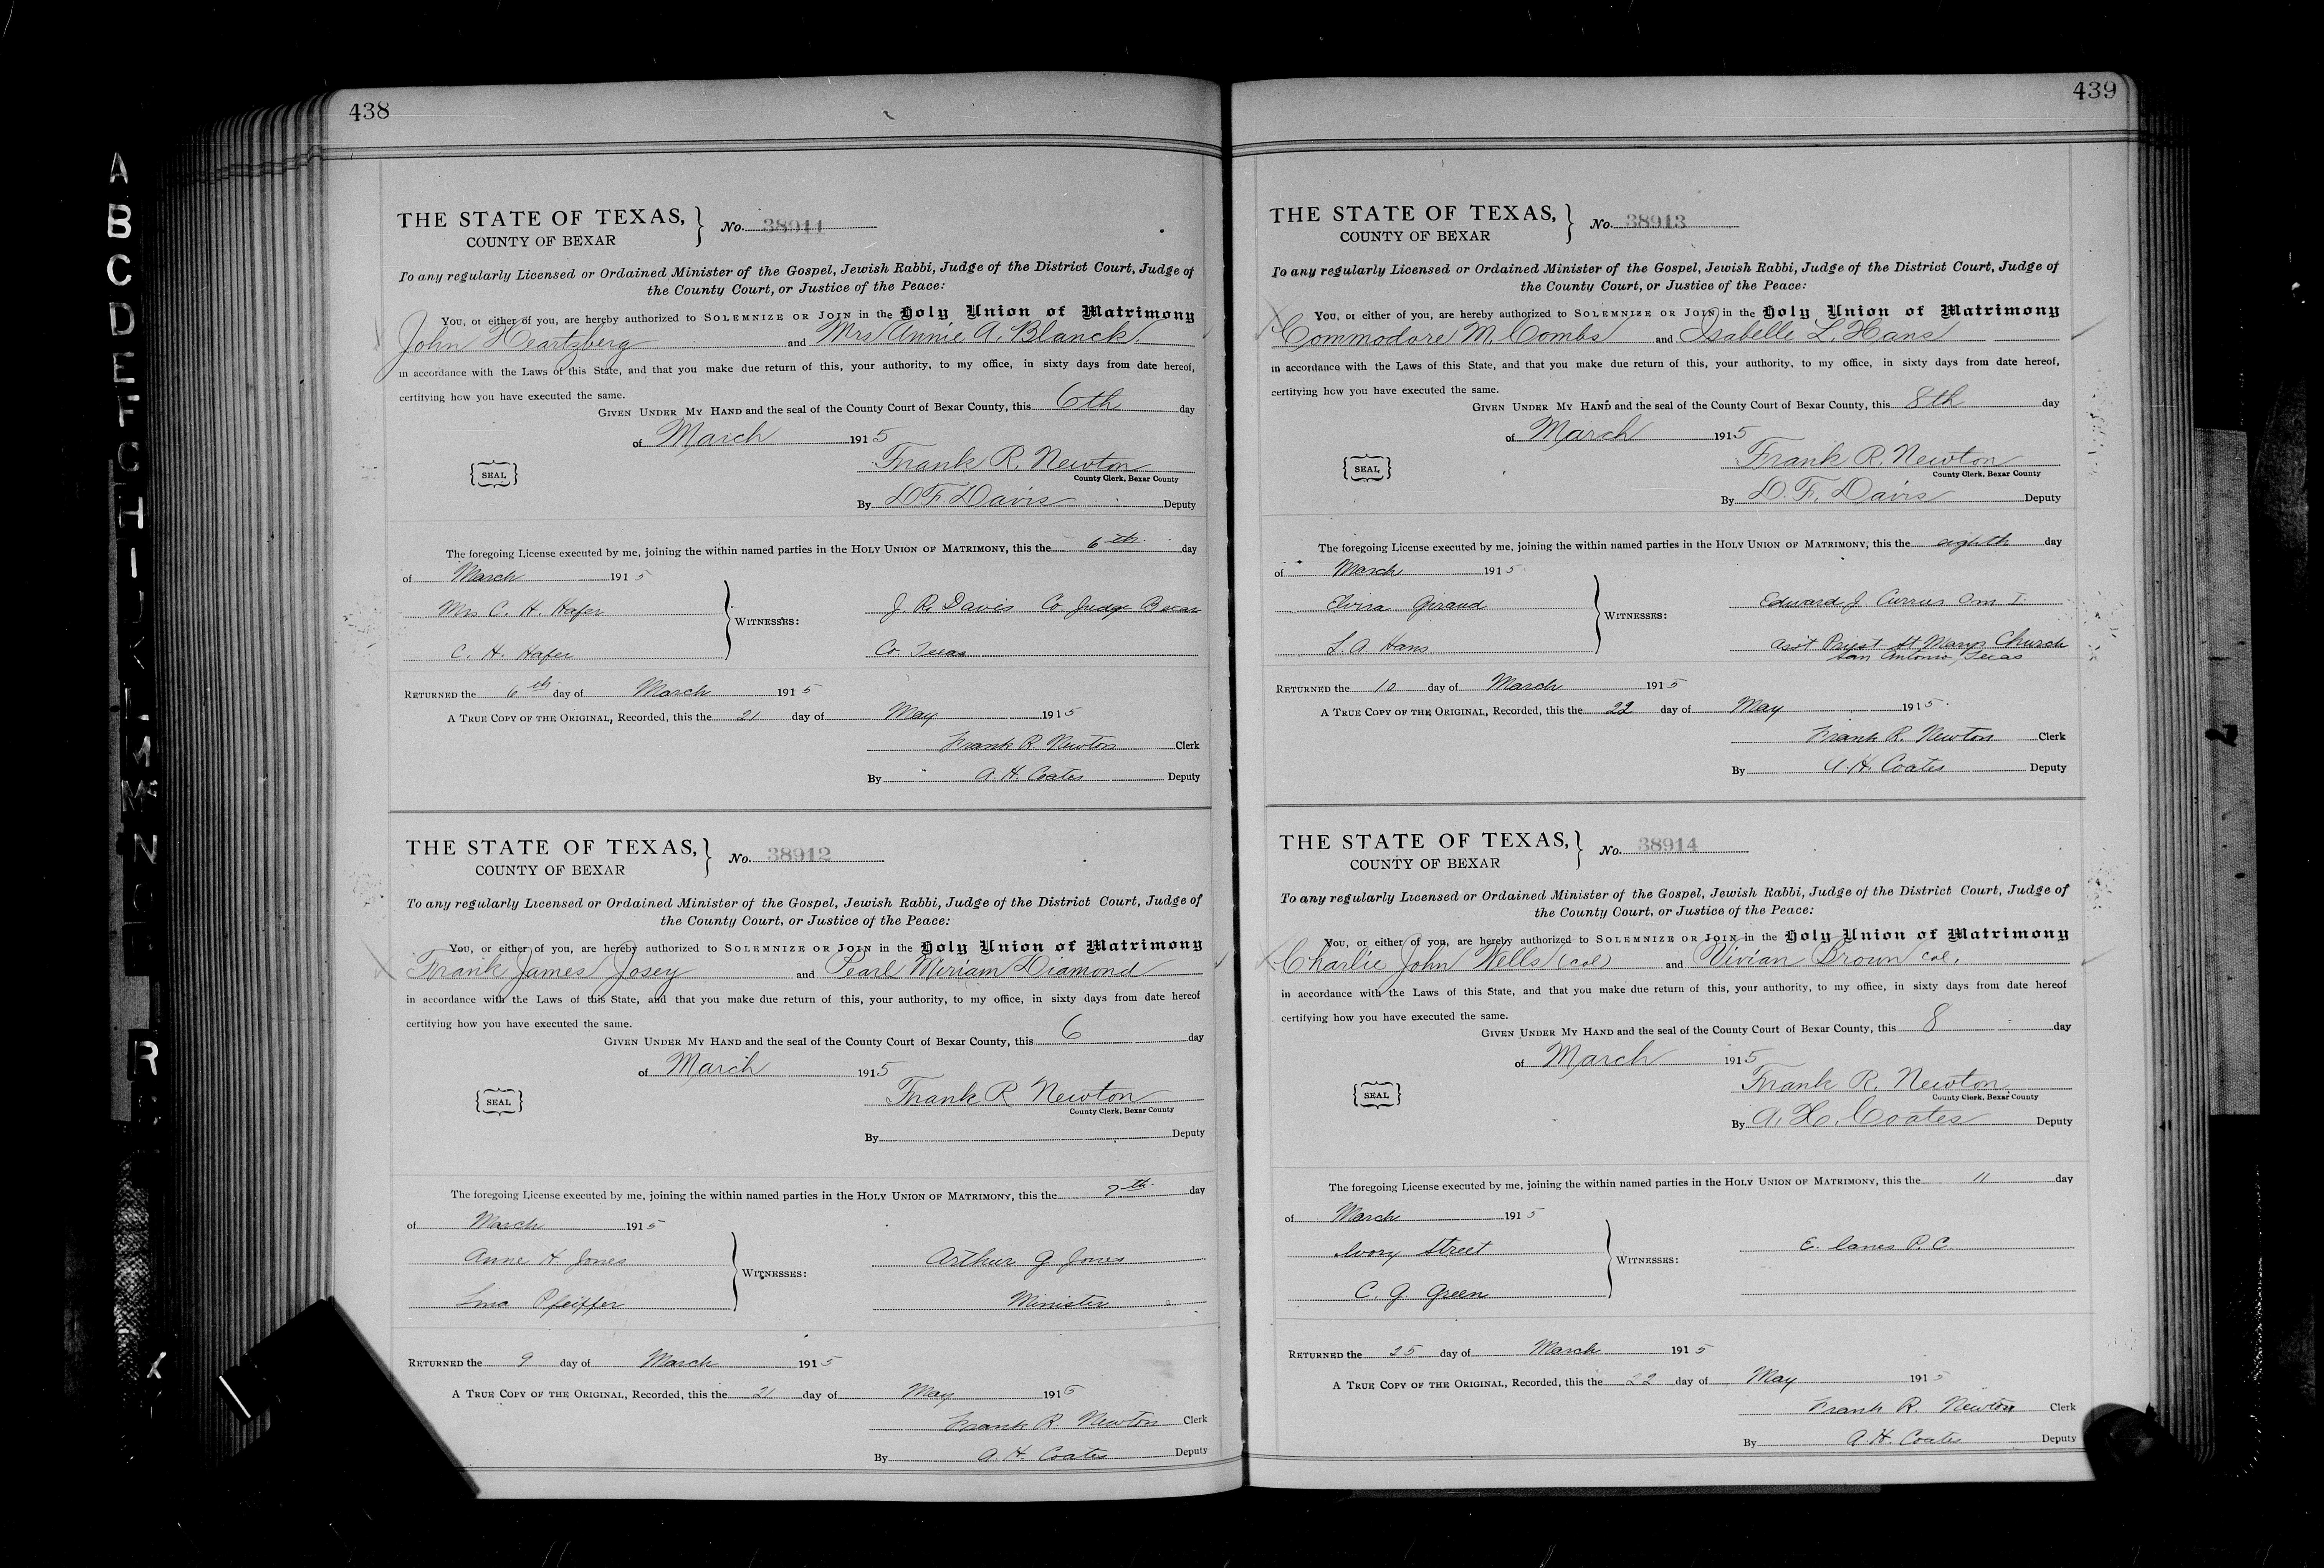 438
THE STATE OF TEXAS,
COUNTY OF BEXAR
No. 38911
To any regularly Licensed or Ordained Minister of the Gospel, Jewish Rabbi, Judge of the District Court, Judge of
the County Court, or Justice of the Peace:
You, or either of you, are hereby authorized to SOLEMNIZE OR JOIN in the Holy Union of Matrimony
John Heartzberg and Mrs Annie A. Blanck
in accordance with the Laws of this State, and that you make due return of this, your authority, to my office, in sixty days from date hereof,
certifying how you have executed the same.
GIVEN UNDER MY HAND and the seal of the County Court of Bexar County, this 6th day
of March 1915
Frank R. Newton
SEAL
County Clerk, Bexar County
By D.F. Davis Deputy
The foregoing License executed by me, joining the within named parties in the HOLY UNION OF MATRIMONY, this the 6th day
of March 1915
Mrs C. H. Hafer J. R. Davis Co. Judge Bexar
WITNESSES:
C. H. Hafer Co. Texas
RETURNED the 6th day of March 1915
A TRUE COPY OF THE ORIGINAL, Recorded, this the 21 day of May 1915
Frank R. Newton Clerk
By A. H. Coates Deputy
THE STATE OF TEXAS,
COUNTY OF BEXAR
No. 38912
To any regularly Licensed or Ordained Minister of the Gospel, Jewish Rabbi, Judge of the District Court, Judge of
the County Court, or Justice of the Peace:
You, or either of you, are hereby authorized to SOLEMNIZE OR JOIN in the Holy Union of Matrimony
Frank James Josey and Pearl Miriam Diamond
in accordance with the Laws of this State, and that you make due return of this, your authority, to my office, in sixty days from date hereof
certifying how you have executed the same.
GIVEN UNDER MY HAND and the seal of the County Court of Bexar County, this 6 day
of March 1915
Frank R Newton
SEAL
County Clerk, Bexar County
By Deputy
The foregoing License executed by me, joining the within named parties in the HOLY UNION OF MATRIMONY, this the 7th day
of March 1915
Anne H Jones Arthur G Jones
WITNESSES:
Lina Pfeiffer Minister
RETURNED the 9 day of March 1915
A TRUE COPY OF THE ORIGINAL, Recorded, this the 21 day of May 1915
Frank R Newton Clerk
By A. H. Coates Deputy
439
THE STATE OF TEXAS,
COUNTY OF BEXAR
No. 38913
To any regularly Licensed or Ordained Minister of the Gospel, Jewish Rabbi, Judge of the District Court, Judge of
the County Court, or Justice of the Peace:
You, or either of you, are hereby authorized to SOLEMNIZE OR JOIN in the Holy Union of Matrimony
Commodore M. Combs and Isabelle L. Hans
in accordance with the Laws of this State, and that you make due return of this, your authority, to my office, in sixty days from date hereof,
certifying how you have executed the same.
GIVEN UNDER MY HAND and the seal of the County Court of Bexar County, this 8th day
of March 1915
Frank R. Newton
SEAL
County Clerk, Bexar County
By D. F. Davis Deputy
The foregoing License executed by me, joining the within named parties in the HOLY UNION OF MATRIMONY, this the eighth day
of March 1915
Elvira Giraud Edward J. Currier O m I.
WITNESSES:
L. A Hans Ass't Priest St Marys Church
San Antonio, Texas
RETURNED the 10 day of March 1915
A TRUE COPY OF THE ORIGINAL, Recorded, this the 22 day of May 1915.
Frank R. Newton Clerk
By A. H. Coates Deputy
THE STATE OF TEXAS,
COUNTY OF BEXAR
No. 38914
To any regularly Licensed or Ordained Minister of the Gospel, Jewish Rabbi, Judge of the District Court, Judge of
the County Court, or Justice of the Peace:
You, or either of you, are hereby authorized to SOLEMNIZE OR JOIN in the Holy Union of Matrimony
Charlie John Wells (col) and Vivian Brown col.
in accordance with the Laws of this State, and that you make due return of this, your authority, to my office, in sixty days from date hereof
certifying how you have executed the same.
GIVEN UNDER MY HAND and the seal of the County Court of Bexar County, this 8 day
of March 1915
Frank R. Newton
SEAL
County Clerk, Bexar County
By A. H. Coates Deputy
The foregoing License executed by me, joining the within named parties in the HOLY UNION OF MATRIMONY, this the 11 day
of March 1915
Ivory Street E. P. C.
WITNESSES:
C. G. Green
RETURNED the 25 day of March 1915
A TRUE COPY OF THE ORIGINAL, Recorded, this the 22 day of May 1915
Frank R. Newton Clerk
By A. H. Coates Deputy